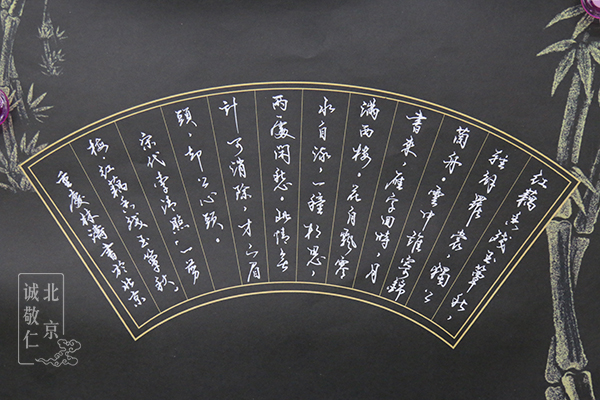 红藕香残玉簟秋，
轻解羅裳，獨上
蘭舟。雲中誰寄錦
書来，雁字回時，月
滿西楼。花自飘零
水自流，一種相思，
两處闲愁。此情无
计可消除，才下眉
頭，却上心頭。
宋代李清照一剪
梅，红藕香残玉簟秋，
重慶林涛書於北京
北京
诚敬仁